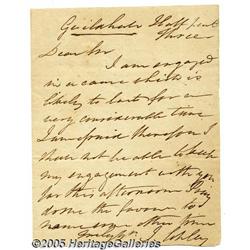 Guildhall Half past
Three
Dear Sir
I am engaged
in a cause which is
likely to last for a
very considerable time
I am afraid therefore I
shall not be able to keep
my engagement with you
for this afternoon
do me the favor to
name any other time
© 2005 Heritage Auctions